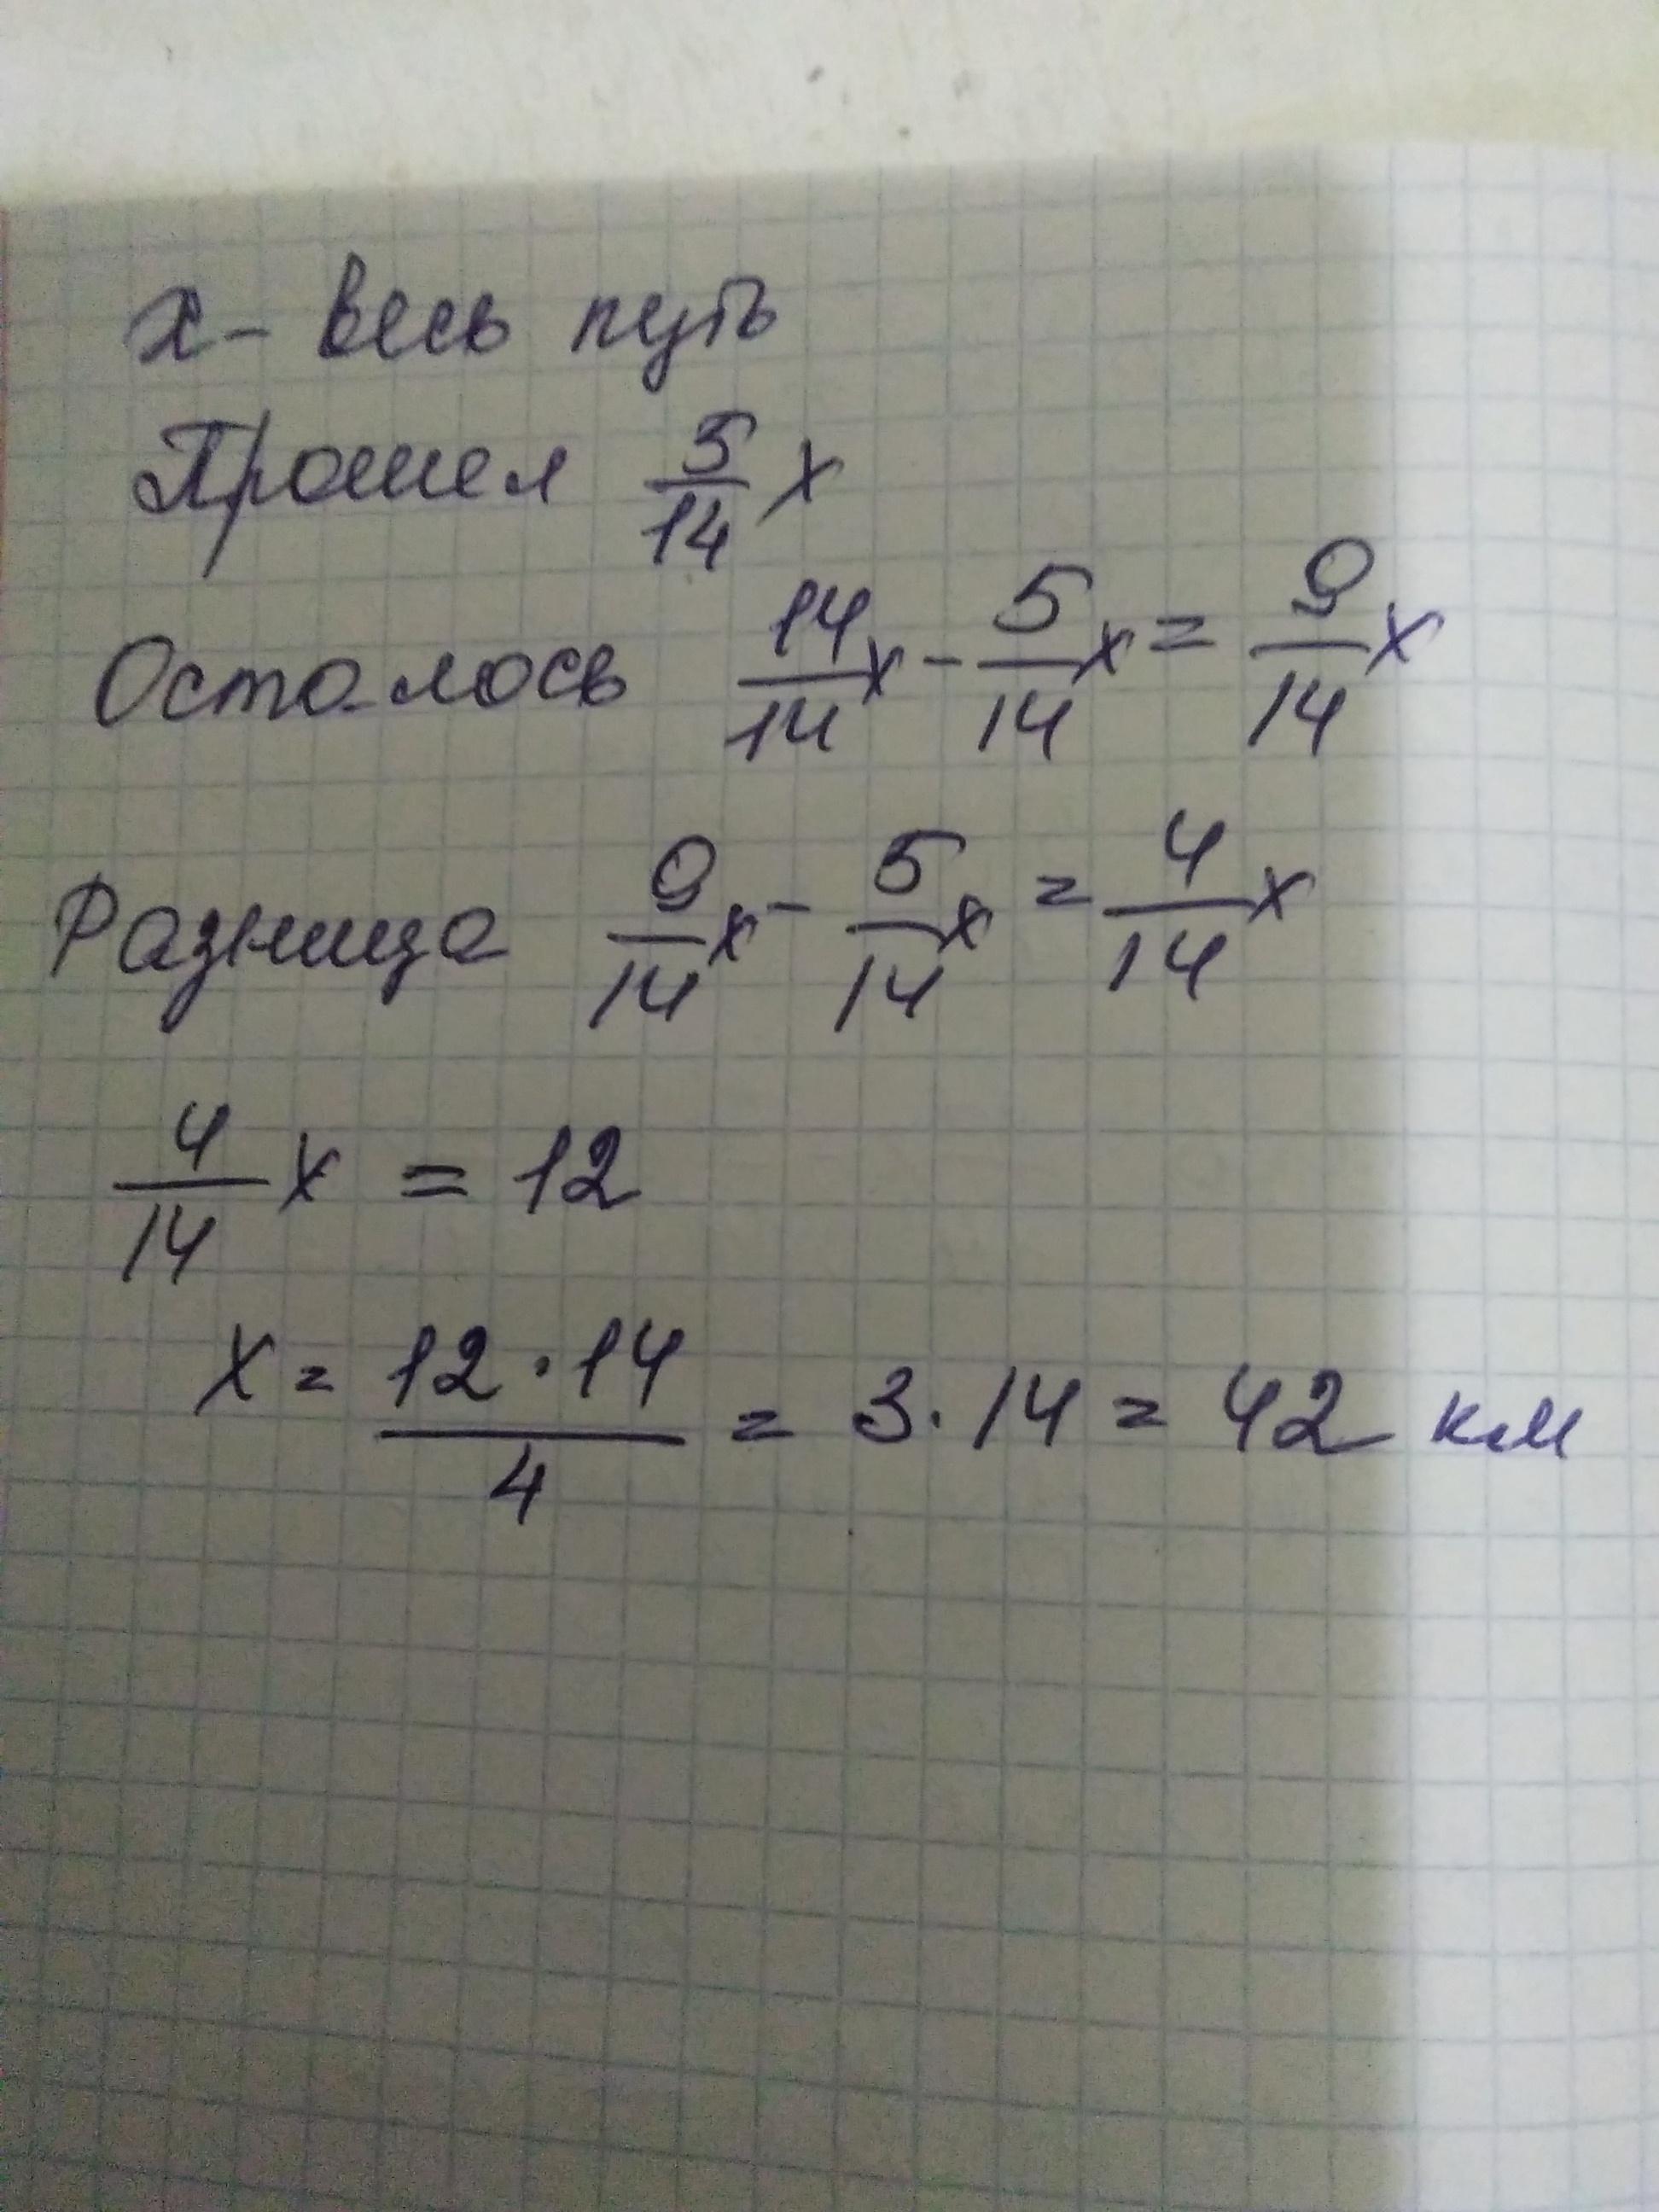 x - весь путь
Прошел 5/14 x
Осталось 14/14 x - 5/14 x = 9/14 x
Разница 9/14 x - 5/14 x = 4/14 x
4/14 x = 12
x = 12 · 14 / 4 = 3 · 14 = 42 км